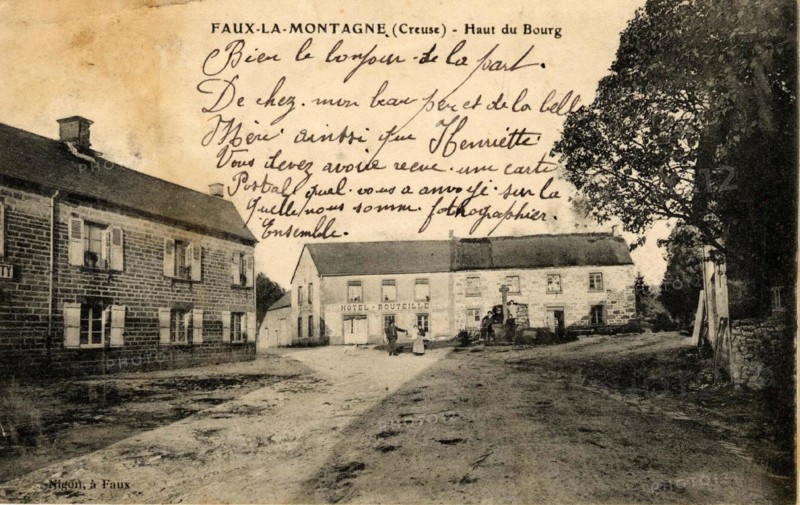 FAUX-LA-MONTAGNE (Creuse) - Haut du Bourg
Bien le bonjour de la part.
De chez. mon beau per et de la belle
Mère ainsi que Henriette
Vous devez avoir reçue une carte
Postal quel vous a anvoyé sur la
Quelle nous somme fothographier.
Ensemble.
HOTEL-BOUTEILLE
Nigon, à Faux